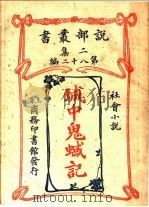 說部叢書
二集
第八十二編
社會小說
城中鬼蜮記
上海商務印書館發行